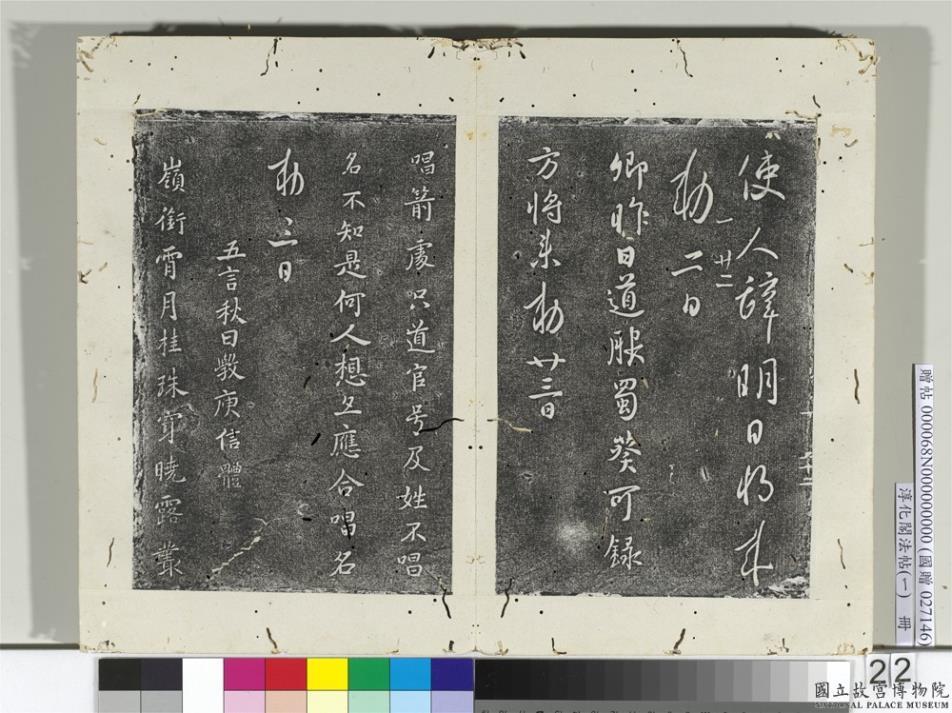 使人辞明日将来
敕 二日
一 廿二
卿昨日道服蜀葵可録
方将来敕廿三日
唱箭處只道官号及姓不唱
名不知是何人想旦應合唱名
敕 三日
五言秋日斅庾信體
嶺銜霄月桂珠穿曉露叢
贈帖 000068N000000000 (國贈 027146)
淳化閣法帖(一) 冊
22
國立故宮博物院
NATIONAL PALACE MUSEUM